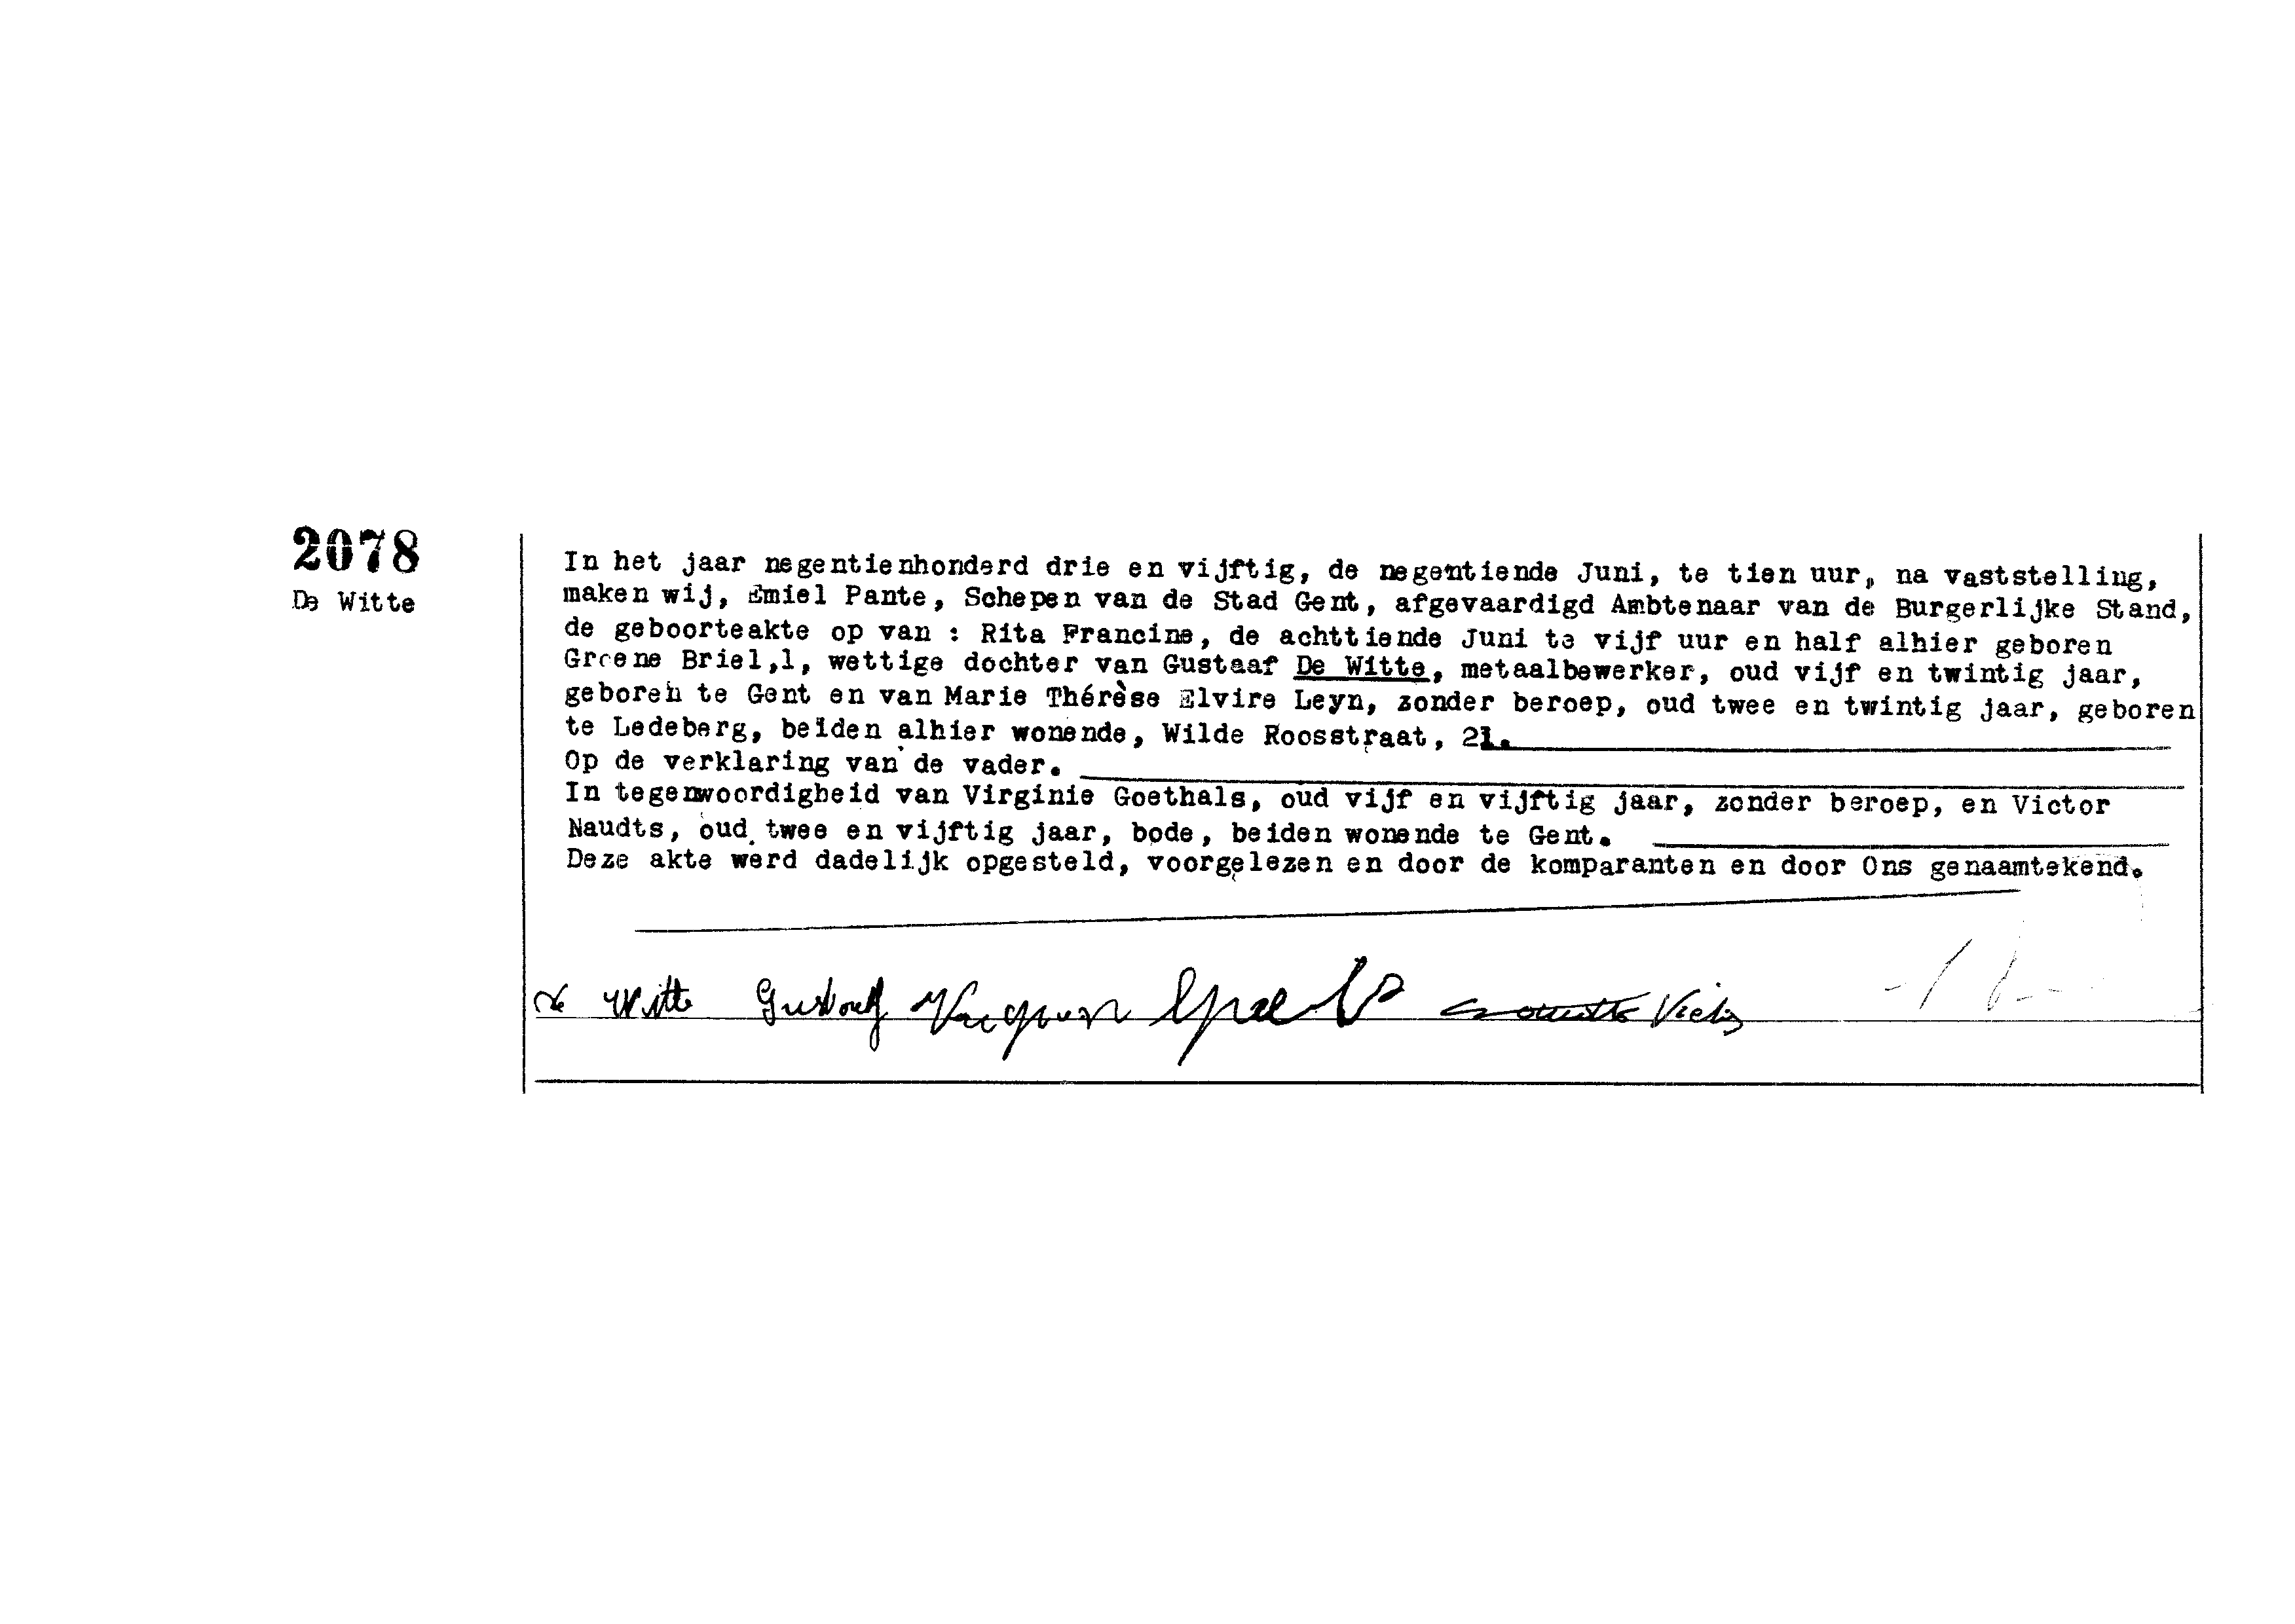 2078
De Witte
In het jaar negentienhonderd drie en vijftig, de negentiende Juni, te tien uur, na vaststelling,
maken wij, Emiel Pante, Schepen van de Stad Gent, afgevaardigd Ambtenaar van de Burgerlijke Stand,
de geboorteakte op van : Rita Francine, de achttiende Juni te vijf uur en half alhier geboren
Groene Briel,1, wettige dochter van Gustaaf De Witte, metaalbewerker, oud vijf en twintig jaar,
geboren te Gent en van Marie Thérèse Elvire Leyn, zonder beroep, oud twee en twintig jaar, geboren
te Ledeberg, beiden alhier wonende, Wilde Roosstraat, 21.
Op de verklaring van de vader.
In tegenwoordigheid van Virginie Goethals, oud vijf en vijftig jaar, zonder beroep, en Victor
Naudts, oud twee en vijftig jaar, bode, beiden wonende te Gent.
Deze akte werd dadelijk opgesteld, voorgelezen en door de komparanten en door Ons genaamtekend.
De Witte Gustaaf